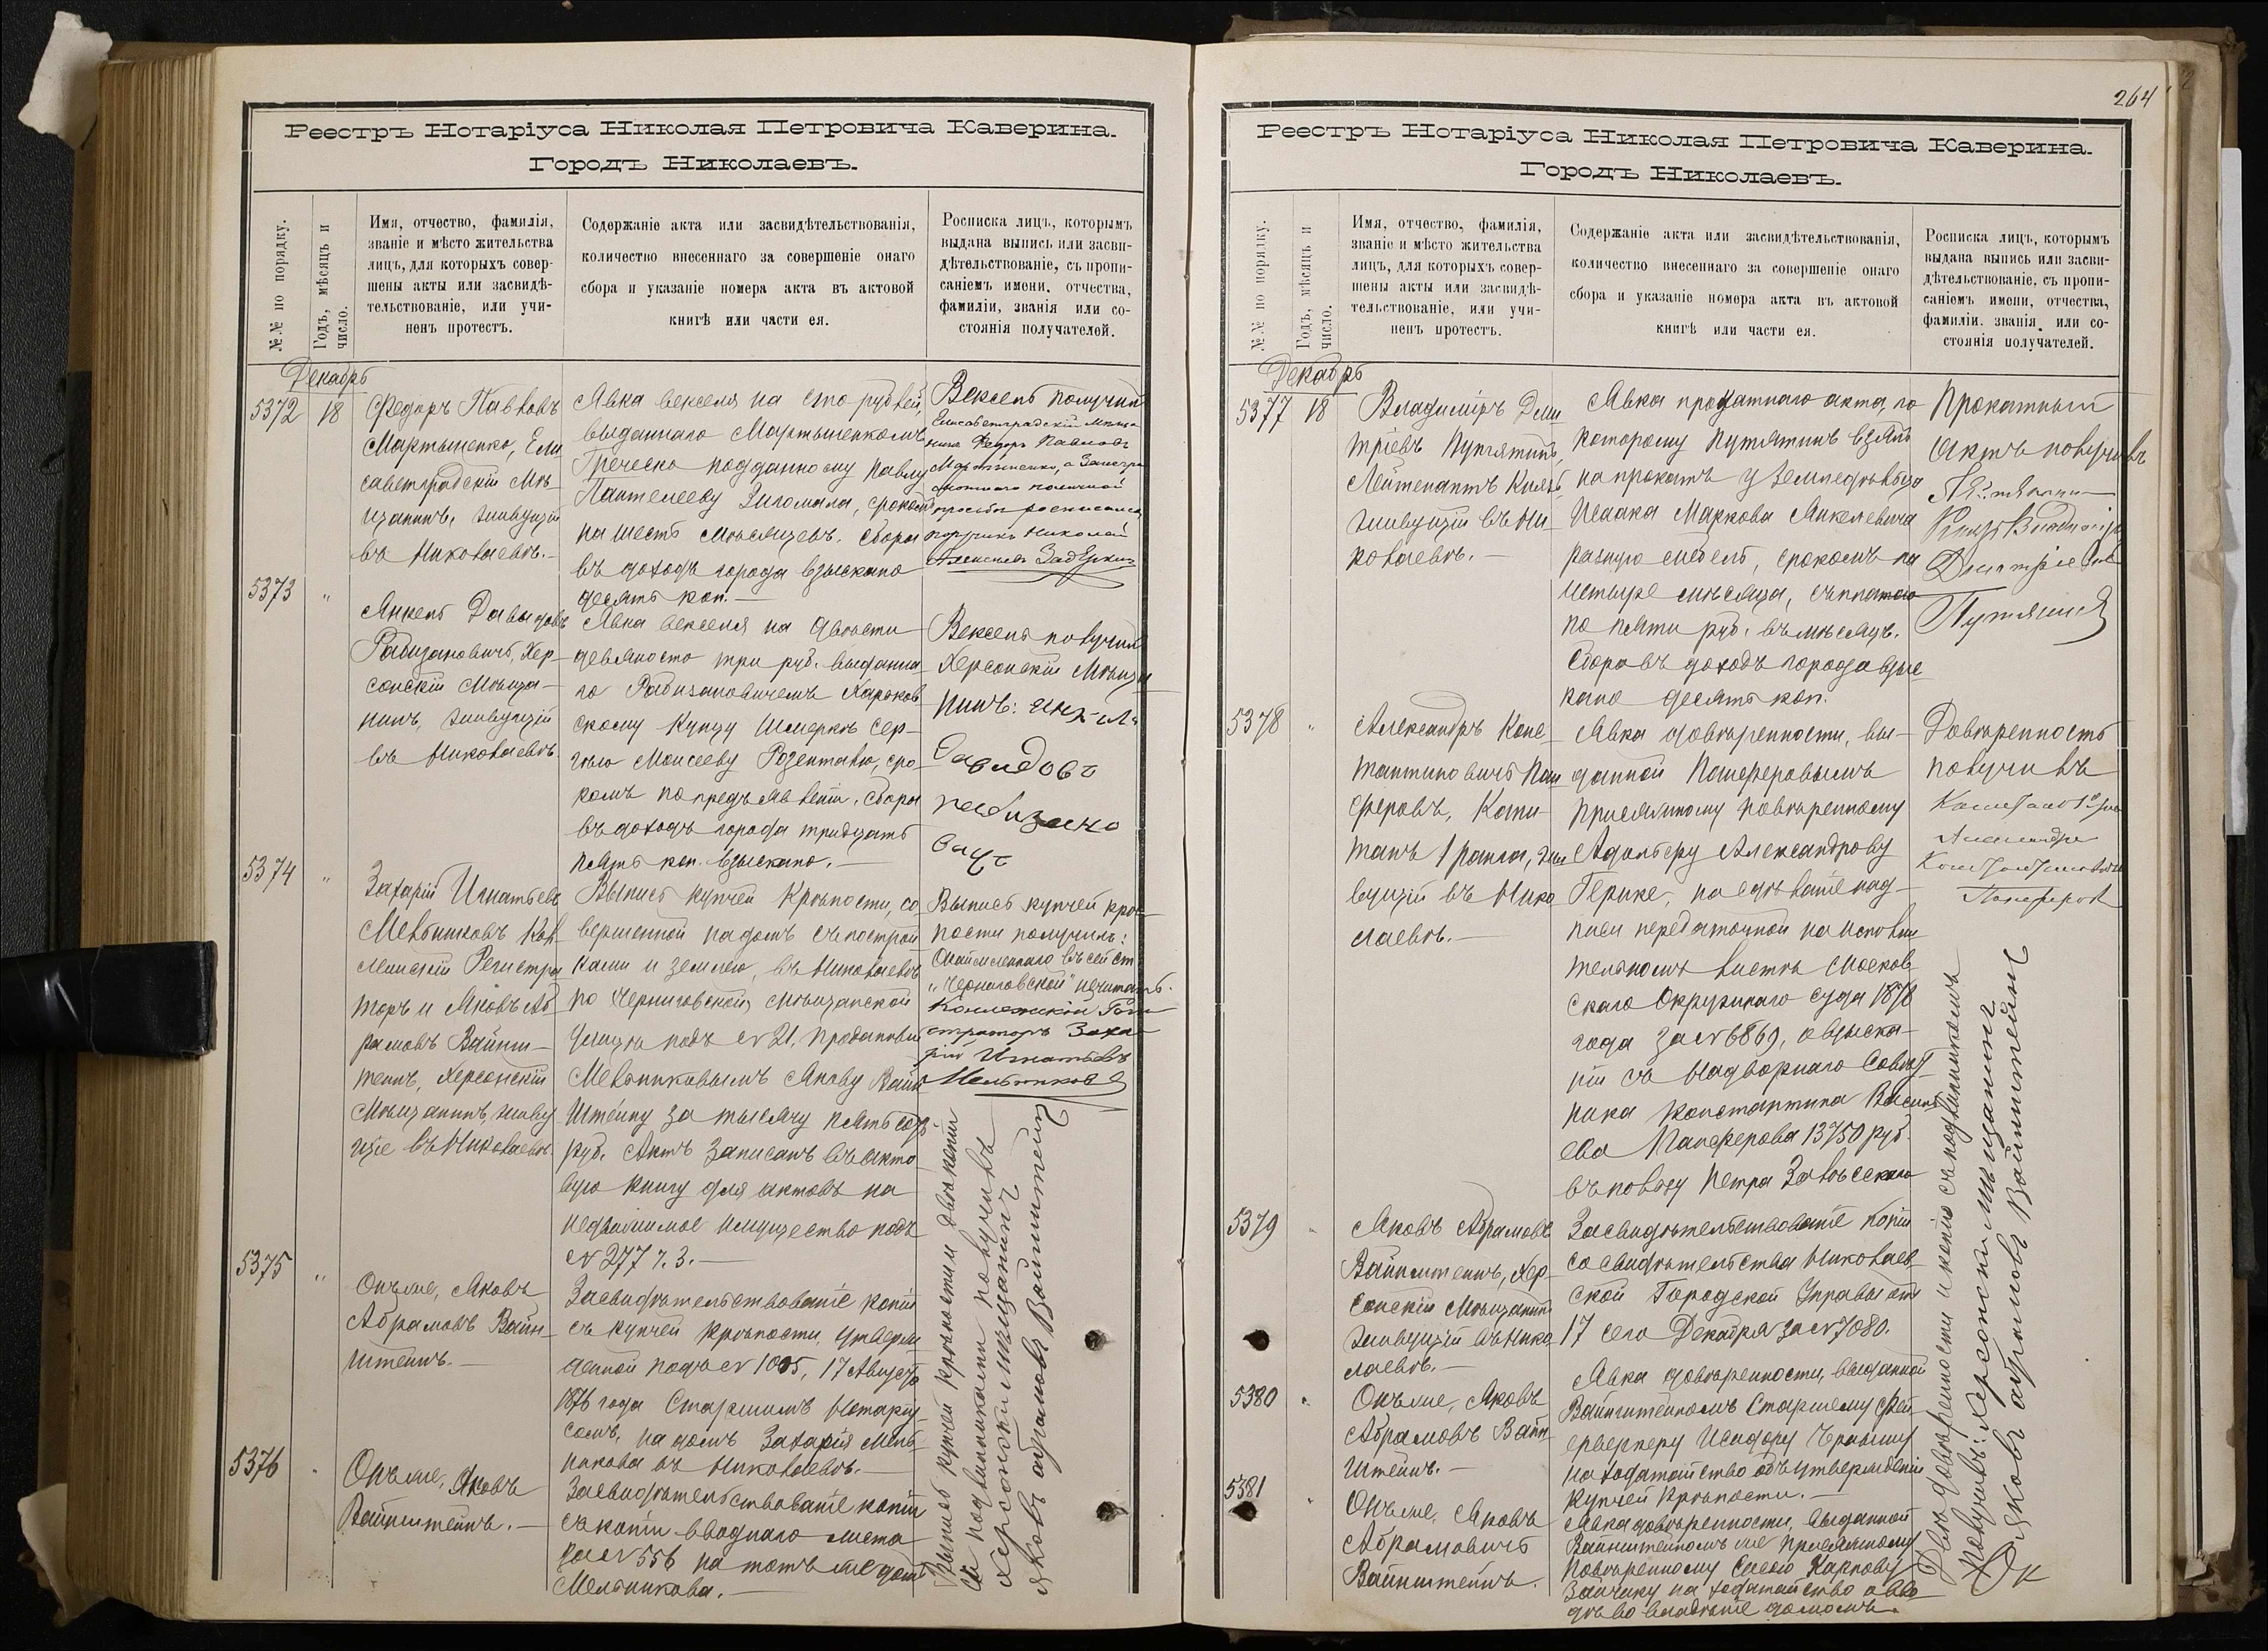 Реестръ Нотаріуса Николая Петровича Каверина.
Городъ Николаевъ.
№№ по порядку.
Годъ, мѣсяцъ и
число.
Имя, отчество, фамилія,
званіе и мѣсто жительства
лицъ, для которыхъ совер-
шены акты или засвидѣ-
тельствованіе, или учи-
ненъ протестъ.
Содержаніе акта или засвидѣтельствованія,
количество внесеннаго за совершеніе онаго
сбора и указаніе номера акта въ актовой
книгѣ или части ея.
Росписка лицъ, которымъ
выдана выпись или засви-
дѣтельствованіе, съ пропи-
саніемъ имени, отчества,
фамиліи, званія или со-
стоянія получателей.
Декабрь
5372 18
Федоръ Павловъ
Мартыненко, Ели
саветградскій Мѣ-
щанинъ, живущій
въ Николаевѣ.—
Явка векселя на сто рублей,
выданнаго Мартыненкомъ
Греческо подданному Павлу
Пантелееву Зигомала, срокомъ
на шесть мѣсяцевъ. Сбора
въ доходъ города взыскано
десять коп.—
Вексель получилъ
Елисаветградскій мѣща-
нинъ Федоръ Павловъ
Мартыненко, а за негра
мотнаго по личной
просьбѣ росписался
Николай
5373 "
Янкель Давыдовъ
Рабизановичъ, Хер-
сонскій Мѣща-
нинъ, живущій
въ Николаевѣ
Явка векселя на двѣсти
девяносто три руб. выданна-
го Рабизановичемъ Харьков
скому Купцу Шмеркѣ Сер-
гѣю Моисееву Розенталю, сро-
комъ по предъявленіи. Сбора
въ доходъ города тридцать
пять коп. взыскано.—
Вексель получилъ
Херсонскій Мѣща
нинъ:
Давидовъ
рабизано
вичъ
5374 "
Захарій Игнатьевъ
Мельниковъ Кол-
лежскій Регистра
торъ и Яковъ Аб
рамовъ Вайнш-
тейнъ, Херсонскій
Мѣщанинъ, живу
щіе въ Николаевѣ.
Выпись купчей Крѣпости, со
вершенной на домъ съ построй
ками и землею, въ Николаевѣ
по Черниговской, Мѣщанской
улицѣ подъ № 21, проданный
Мельниковымъ Якову Вайн
Штейну за тысячу пятьсотъ
руб. Актъ записанъ въ акто
вую книгу для актовъ на
недвижимое имущество подъ
№ 277 г. 3.—
Выпись купчей крѣ-
пости получилъ:
въ сей ст.
„Черниговской" не читать.
Коллежскій Реги
страторъ Заха-
рій Игнатьевъ
Мельниковъ
5375 "
Онъ же, Яковъ
Абрамовъ Вайн-
штейнъ.—
Засвидѣтельствованіе копіи
съ купчей крѣпости, утверж
денной подъ № 1005, 17 Августа
1876 года Старшимъ Нотаріу-
сомъ, на домъ Захарія Мель-
никова въ Николаевѣ.—
5376 "
Онъ же, Яковъ
Вайнштейнъ.—
Засвидѣтельствованіе копіи
съ копіи вводнаго листа
за № 556 на тотъ же домъ
Мельникова.—
Выпись купчей крѣпости и двѣ копіи
съ подлинниками получилъ
херсонскій мѣщанинъ
яковъ абрамовъ Вайнштейнъ
264
Реестръ Нотаріуса Николая Петровича Каверина.
Городъ Николаевъ.
№№ по порядку.
Годъ, мѣсяцъ и
число.
Имя, отчество, фамилія,
званіе и мѣсто жительства
лицъ, для которыхъ совер-
шены акты или засвидѣ-
тельствованіе, или учи-
ненъ протестъ.
Содержаніе акта или засвидѣтельствованія,
количество внесеннаго за совершеніе онаго
сбора и указаніе номера акта въ актовой
книгѣ или части ея.
Росписка лицъ, которымъ
выдана выпись или засви-
дѣтельствованіе, съ пропи-
саніемъ имени, отчества,
фамиліи, званія или со-
стоянія получателей.
Декабрь
5377 18
Владиміръ Дми
тріевъ Путятинъ,
Лейтенантъ Князь,
живущій въ Ни-
колаевѣ.—
Явка прокатнаго акта, по
которому Путятинъ взялъ
на прокатъ у Земледѣльца
Исаака Маркова Янкелевича
разную мебель, срокомъ на
четыре мѣсяца, съ платою
по пяти руб. въ мѣсяцъ.
Сбора въ доходъ города взыс-
кано десять коп.
Прокатный
актъ получилъ
Лейтенантъ
Князь Владиміръ
Путятинъ
5378 "
Александръ Конс-
тантиновичъ Пан
феровъ, Капи-
танъ 1 ранга, жи
вущій въ Нико
лаевѣ.—
Явка довѣренности, вы-
данной Панферовымъ
Присяжному повѣренному
Адольберу Александрову
Герике, на сдѣланіе над-
писи передаточной на исполни
тельномъ листѣ Москов-
скаго Окружнаго Суда 1876
года за № 6869, о взыска-
ніи съ Надворнаго Совѣт-
ника Константина Василь
ева Панферова 13750 руб.
въ пользу Петра
Довѣренность
получилъ
Александръ
Константиновичъ
Панферовъ
5379 "
Яковъ Абрамовъ
Вайнштейнъ, Хер-
сонскій Мѣщанинъ
живущій въ Нико
лаевѣ.—
Засвидѣтельствованіе копіи
со свидѣтельства Николаев-
ской Городской Управы отъ
17 сего Декабря за № 7080.
5380 "
Онъ же, Яковъ
Абрамовъ Вайн-
штейнъ.—
Явка довѣренности, выданной
Вайнштейномъ Старшему Фей-
ерверкеру Исидору
на ходатайство объ утвержденіи
купчей крѣпости.—
5381 "
Онъ же, Яковъ
Абрамовичъ
Вайнштейнъ.
Явка довѣренности, выданной
Вайнштейномъ же присяжному
повѣренному Карпову
Зайчику на ходатайство о вво
дѣ во владѣніе домомъ.
Двѣ довѣренности и копію съ подлинникомъ
получилъ: Херсонскій мѣщанинъ
Яковъ абрамовъ Вайнштейнъ